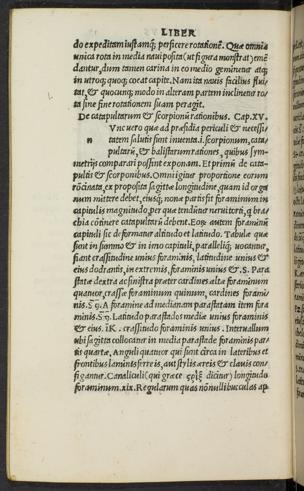 LIBER
do expeditam iustamq; perficere rotationẽ. Quæ omnia
unica rota in media naui posita (ut figura monstrat) emẽ
dantur, dum tamen carina in eo medio geminetur atq;
in utroq; quoq; coeat capite. Nam ita nauis facilius flui/
tat, & quocunq; modo in alteram partem inclinetur ro/
ta sine fine rotationem suam peragit.
De catapultarum & scorpionũ rationibus. Cap. XV.
n
Vnc uero quæ ad præsidia periculi & necessi/
tatem salutis sunt inuenta. i. scorpionum, cata/
pultarũ, & balistarum rationes, quibus sym/
metrijs comparari possint exponam. Et primũ de cata/
pultis & scorponibus. Omnis eius proportione eorum
rõcinata, ex proposita sagittæ longitudine, quam id orga
num mittere debet, eiusq; nonæ partis fit foraminum in
capitulis magnitudo, per quæ tenduntur neruitorti, q bra/
chia cõtinere catapultarũ debent. Eorũ autem foraminũ
capituli sic deformatur altitudo et latitudo. Tabulæ quæ
sunt in summo & in imo capituli, paralleliq; uocantur,
fiant crassitudine unius foraminis, latitudine unius &
eius dodrantis, in extremis, foraminis unius & .S. Para
statæ dextra ac sinistra præter cardines altæ foraminum
quatuor, crassæ foraminum quinum, cardines forami/
nis. A foramine ad mediam parastatam item fora
minis. Latitudo parastados mediæ unius foraminis
& eius. crassitudo foraminis unius. Interuallum
ubi sagitta collocatur in media parastade foraminis par/
tis quartæ. Anguli quatuor qui sunt circa in lateribus et
frontibus laminis ferreis, aut stylis æreis & clauis con/
figantur. Canaliculi (qui græce dicitur) longitudo
foraminum. xix. Regularum quas nõnulli bucculas ap